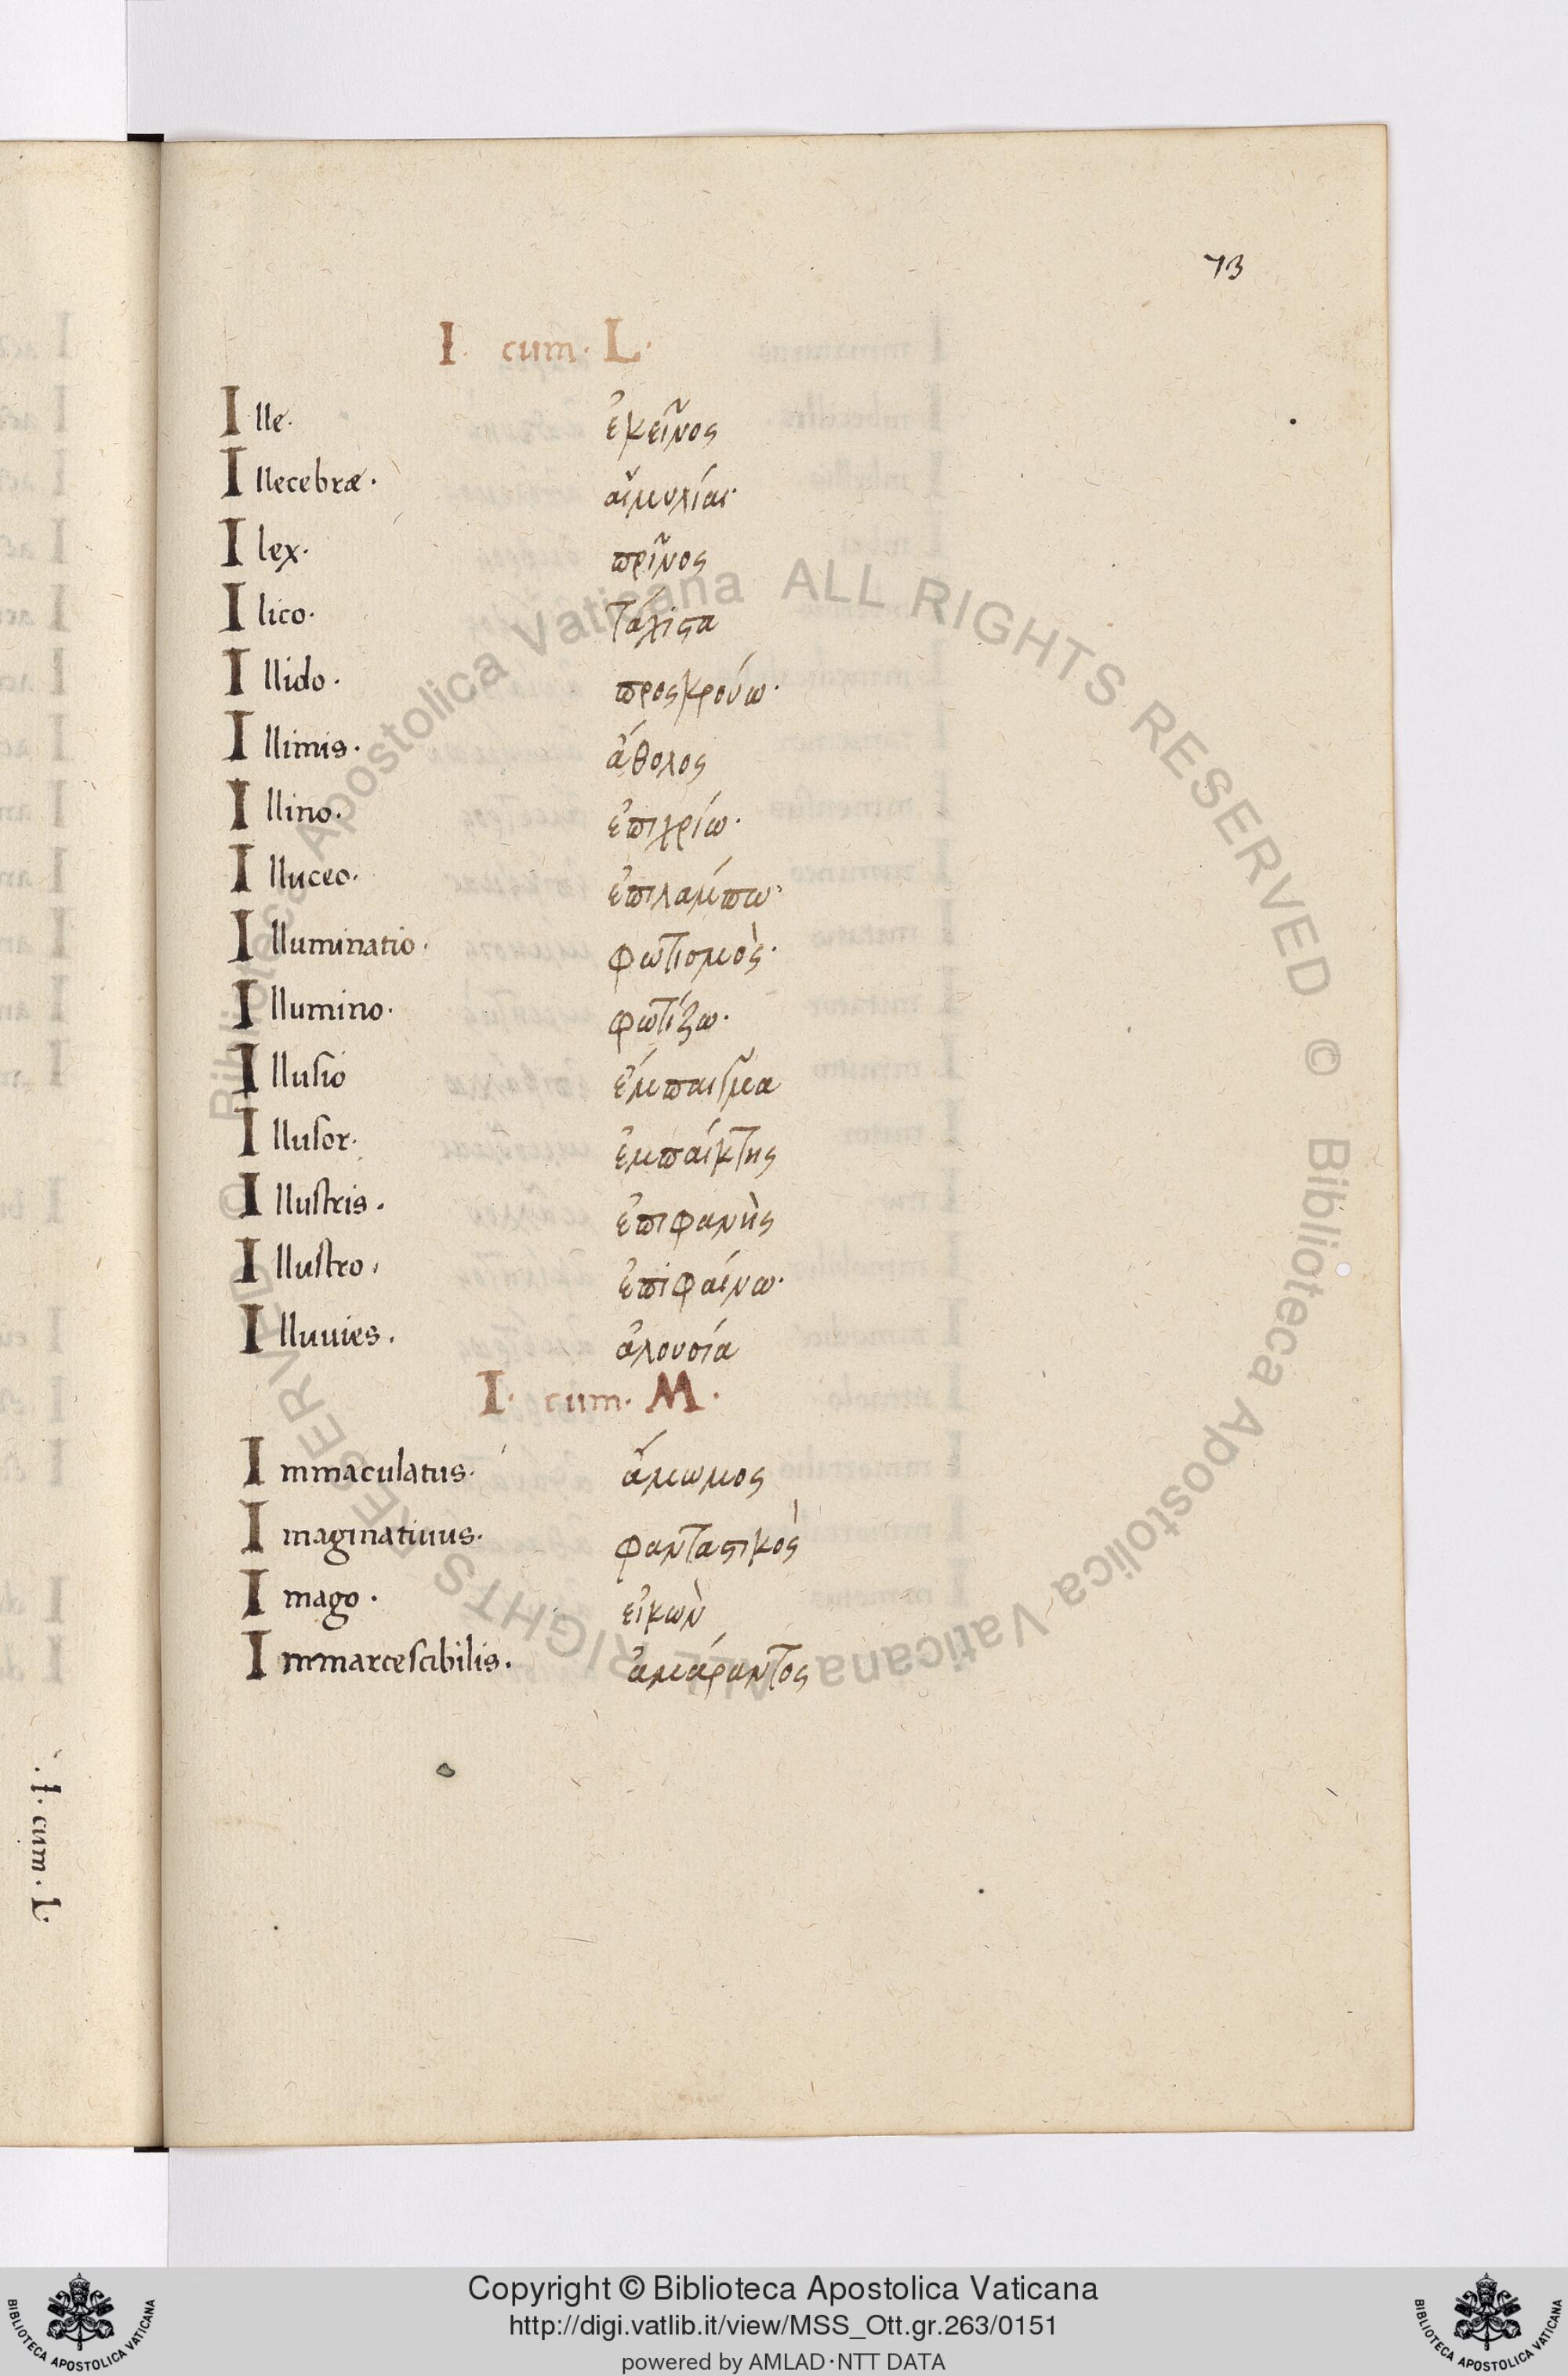 73
I. cum. L.
Ille. ἐκεῖνος
Illecebræ. αἱμυλίαι.
Ilex. πρῖνος
Ilico. τάχιϛα
Illido. προςκρούω.
Illimis. άθολος
Illino. ἐπιχρίω.
Illuceo. ἐπιλαμπω.
Illuminatio. φωτισμὸς.
Illumino. φωτίζω.
Illusio ἔμπαισμα
Illusor. ἐμπαίκτης
Illustris. ἐπιφανὴς
Illustro. ἐπιφαίνω.
Illuuies. ἀλουσία
I. cum. M.
Immaculatus. ἄμωμος
Imaginatiuus. φανταϛικὸς
Imago. εἰκὼν
Immarcescibilis. ἀμάραντος
.I. cum. L.
Biblioteca Apostolica Vaticana ALL RIGHTS RESERVED © Biblioteca Apostolica Vaticana ALL RIGHTS RESERVED ©
Copyright © Biblioteca Apostolica Vaticana
http://digi.vatlib.it/view/MSS_Ott.gr.263/0151
powered by AMLAD·NTT DATA
BIBLIOTECA APOSTOLICA VATICANA
BIBLIOTECA APOSTOLICA VATICANA